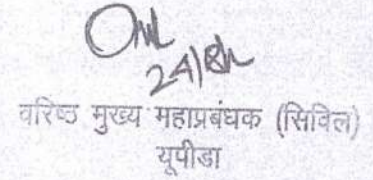 वरिष्ठ मुख्य महाप्रबंधक (सिविल)
यूपीडा